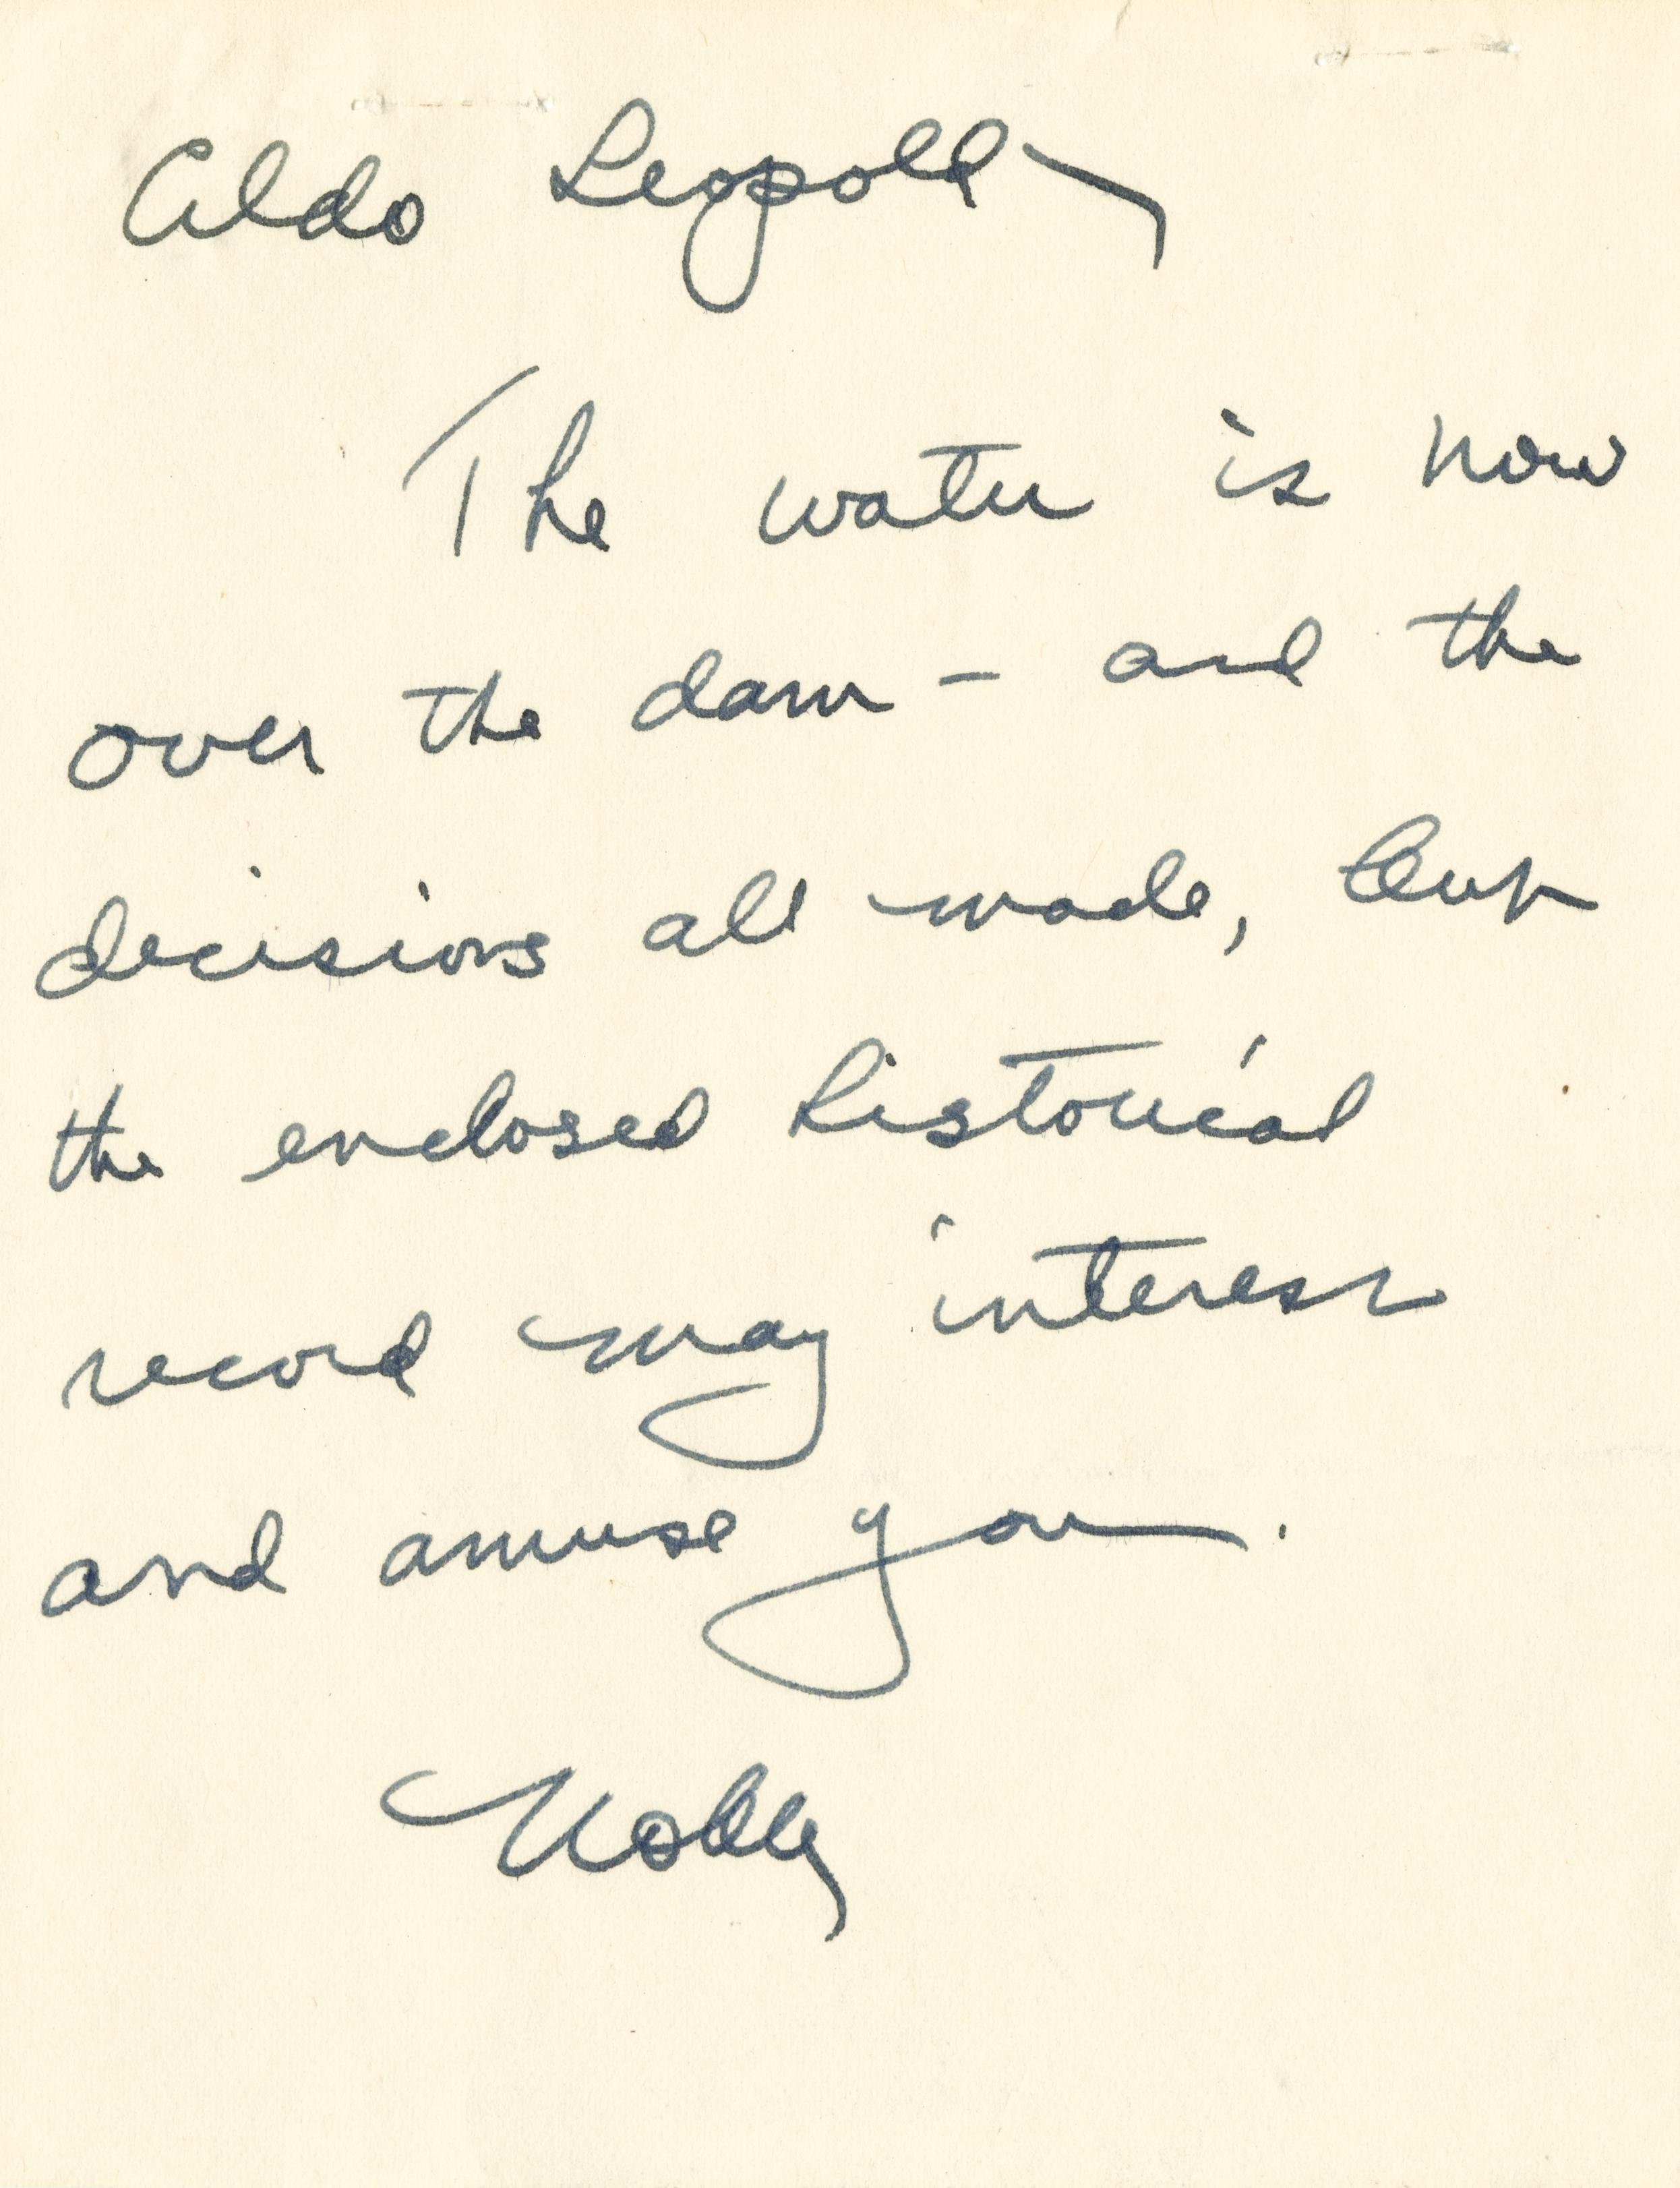 Aldo Leopold
The water is now
over the dam - and the
decisions all made, but
the enclosed historical
record may interest
and amuse you.
Noble